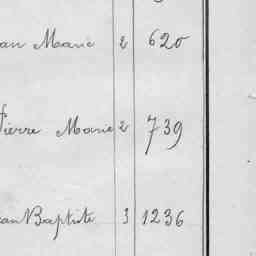 an Marie 2 620
Pierre Marie 2 739
ean Baptiste 3 1236